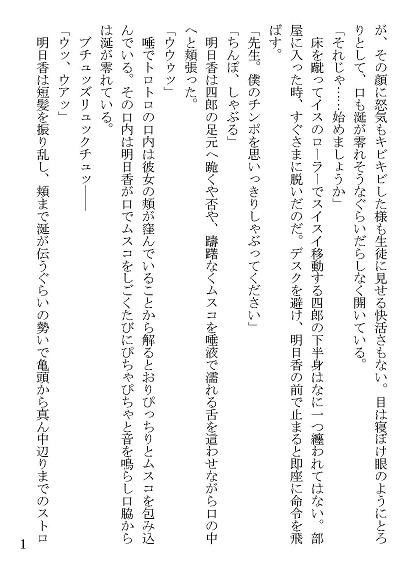 が、その顔に怒気もキビキビした様も生徒に見せる快活さもない。目は寝ぼけ眼のようにとろ
りとして、口も涎が零れそうなぐらいだらしなく開いている。
「それじゃ……始めましょうか」
床を蹴ってイスのローラーでスイスイ移動する四郎の下半身はなに一つ纏われてはない。部
屋に入った時、すぐさまに脱いだのだ。デスクを避け、明日香の前で止まると即座に命令を飛
ばす。
「先生。僕のチンポを思いっきりしゃぶってください」
「ちんぽ、しゃぶる」
明日香は四郎の足元へ跪くや否や、躊躇なくムスコを唾液で濡れる舌を這わせながら口の中
へと頬張った。
「ウウゥッ」
唾でトロトロの口内は彼女の頬が窪んでいることから解るとおりぴっちりとムスコを包み込
んでいる。その口内は明日香が口でムスコをしごくたびにぴちゃぴちゃと音を鳴らし口脇から
は涎が零れている。
ブチュッズリュックチュッ――
「ウッ、ウアッ」
明日香は短髪を振り乱し、頬まで涎が伝うぐらいの勢いで亀頭から真ん中辺りまでのストロ
1